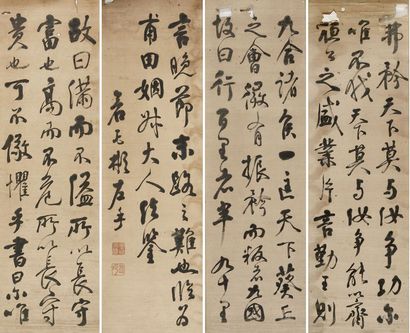 故曰滿而不溢所以長守
富也高而不危所以長守
貴也可不儆懼乎書曰尔唯
弗矜天下莫与汝爭功尔
唯不伐天下莫与汝爭能以齊
桓公之盛業片言勤王則
九合諸侯一匡天下葵丘
之會微有振矜而叛者九國
故曰行百里者半九十里
言晚節末路之難也臨為
甫田姻大人法鑒
左手